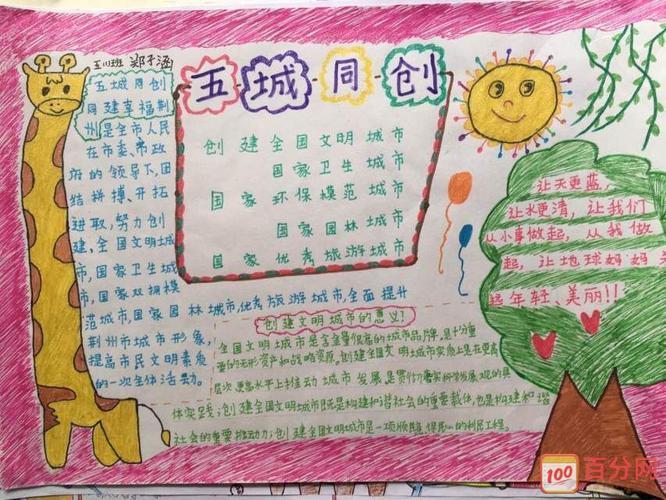 五(1)班 郑子涵
五城同创
五城同创
同建幸福荆
州是全市人民
在市委、市政
府的领导下,团
结拼搏、开拓
进取,努力创
建,全国文明城
市,国家卫生城
市,国家双拥模
范城市,国家园林城市,优秀旅游城市,全面提升
荆州市城市形象,
提高市民文明素质
的一次全体活动。
创建全国文明城市
国家卫生城市
国家环保模范城市
国家园林城市
国家优秀旅游城市
让天更蓝,
让水更清,让我们
从小事做起,从我做
起,让地球妈妈
起年轻、美丽!!
创建文明城市的意义!
全国文明城市是含金量很高的城市品牌,是十分重
要的无形资产和战略资源,创建全国文明城市实质上是在更高
层次更高水平上推动城市发展,是贯彻落实科学发展观的具
体实践;创建全国文明城市既是构建和谐社会的重要载体,也是构建和谐
社会的重要推动力;创建全国文明城市是一项顺民意、得民心的利民工程。
100 百分网